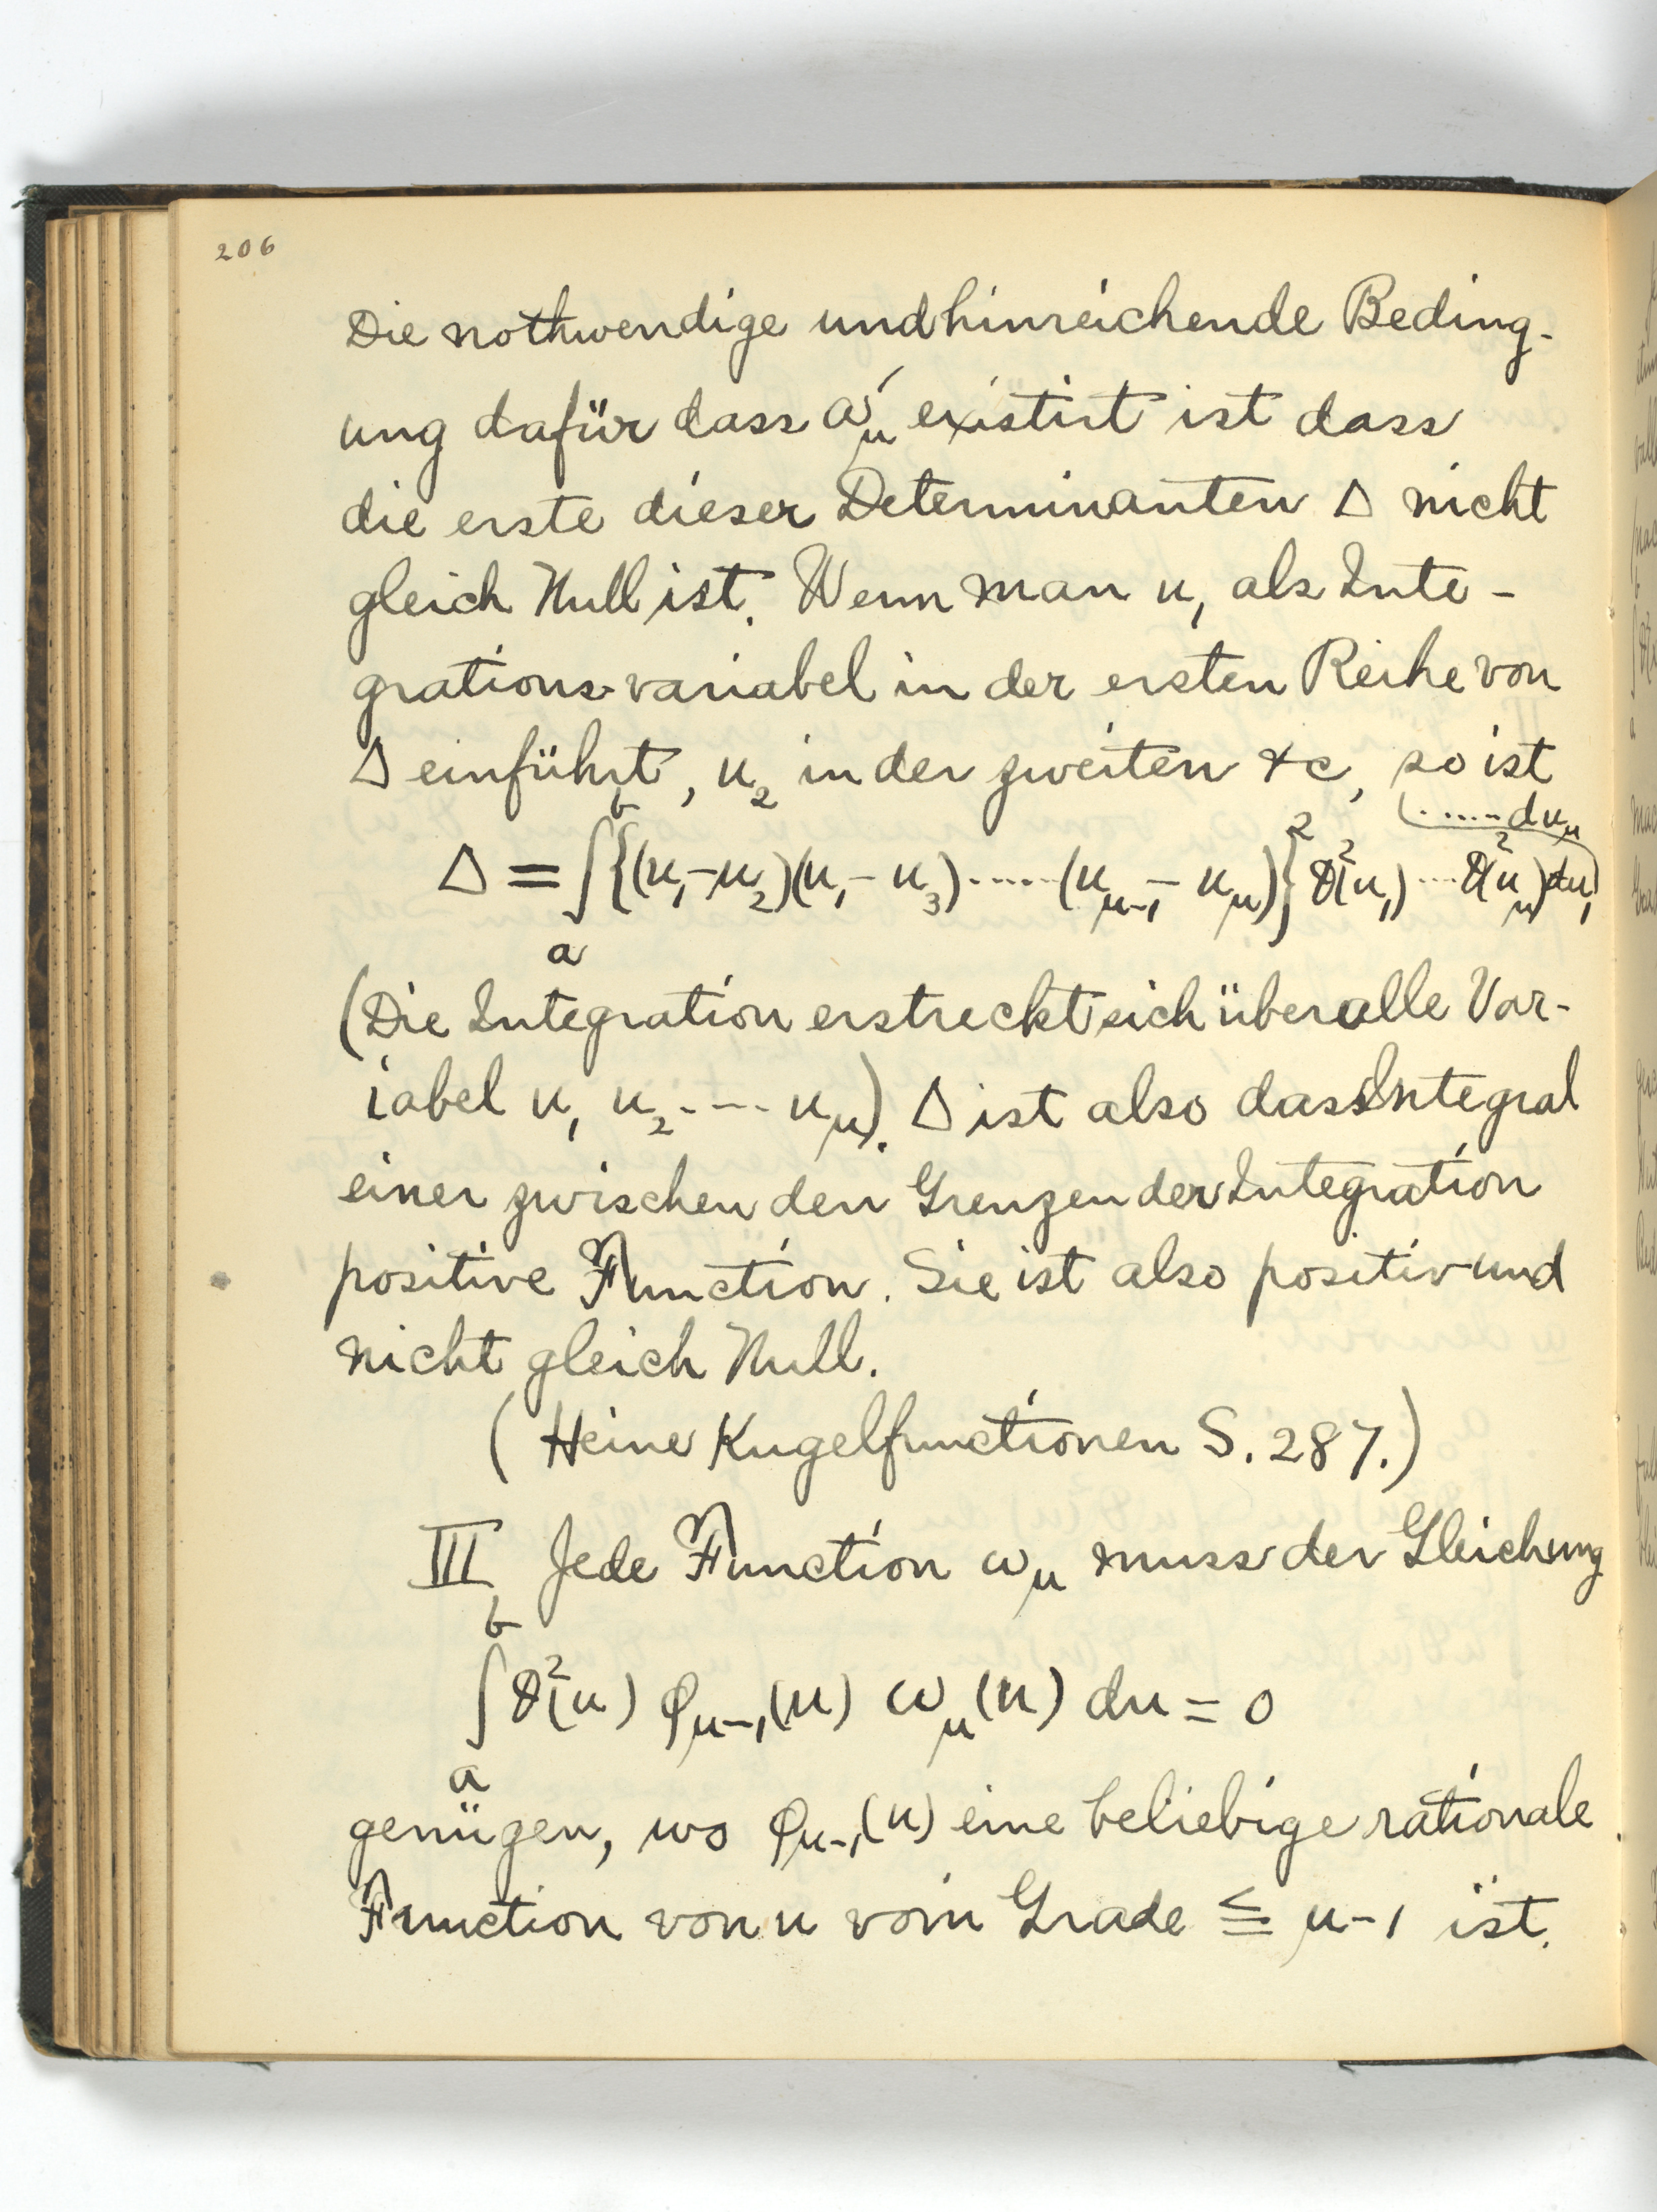 206
Die nothwendige und hinreichende Beding-
ung dafür dass a'_μ existirt ist dass
die erste dieser Determinanten Δ nicht
gleich Null ist. Wenn man u₁ als Inte-
grations-variabel in der ersten Reihe von
Δ einführt, u₂ in der zweiten &c, so ist
Δ = ∫_a^b {(u₁-u₂)(u₁-u₃).....(u_{μ-1}-u_μ)}² ϑ²(u₁)...ϑ²(u_μ)du₁.....du_μ
(Die Integration erstreckt sich über alle Var-
iabel u₁ u₂.... u_μ). Δ ist also dass Integral
einer zwischen den Grenzen der Integration
positive Function. Sie ist also positiv und
nicht gleich Null.
(Heine Kugelfunctionen S. 287.)
III Jede Function ω_μ muss der Gleichung
∫_a^b ϑ²(u) φ_{μ-1}(u) ω_μ(u) du = 0
genügen, wo φ_{μ-1}(u) eine beliebige rationale
Function von u vom Grade ≦ μ-1 ist.